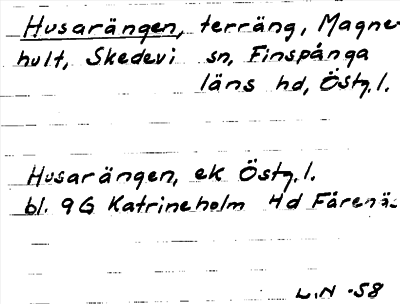 Husarängen, terräng, Magne-
hult, Skedevi sn, Finspånga
läns hd, Östg.l.
Husarängen, ek Östg.l.
bl. 9G Katrineholm Hd Fårenä-
L.N -58